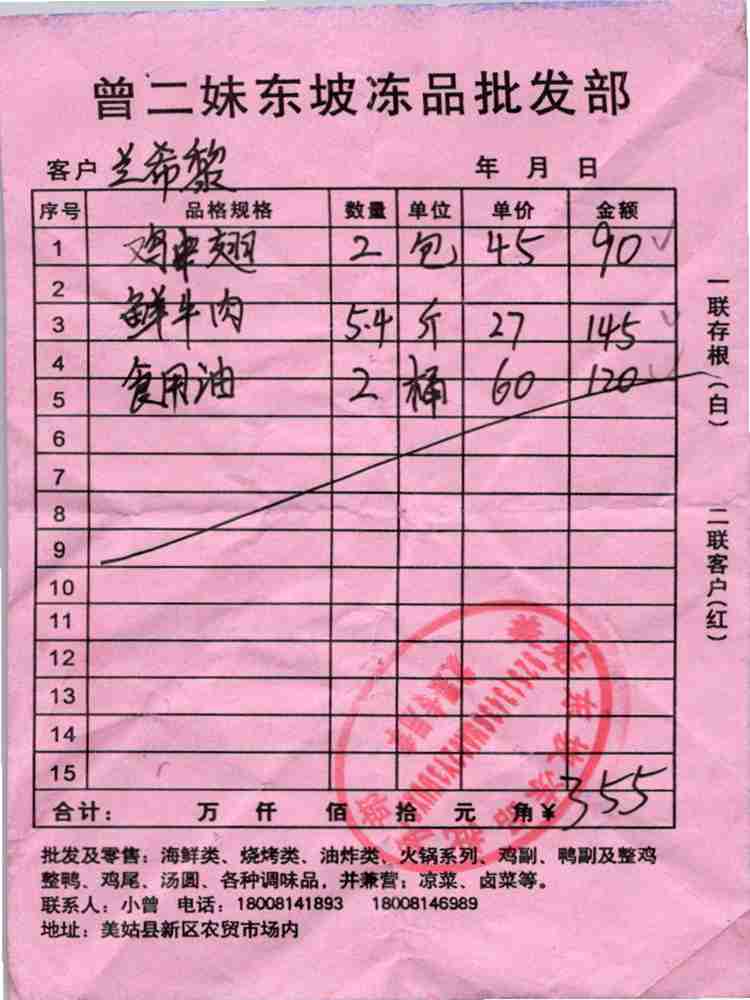 曾二妹东坡冻品批发部
客户 兰希黎 年 月 日
序号 品格规格 数量 单位 单价 金额
1 鸡中翅 2 包 45 90
2
3 鲜牛肉 5.4 斤 27 145
4
5 食用油 2 桶 60 120
6
7
8
9
10
11
12
13
14
15
合计: 万 仟 佰 拾 元 角¥355
批发及零售:海鲜类、烧烤类、油炸类、火锅系列、鸡副、鸭副及整鸡
整鸭、鸡尾、汤圆、各种调味品,并兼营;凉菜、卤菜等。
联系人:小曾 电话:18008141893 18008146989
地址:美姑县新区农贸市场内
一联存根(白)
二联客户(红)